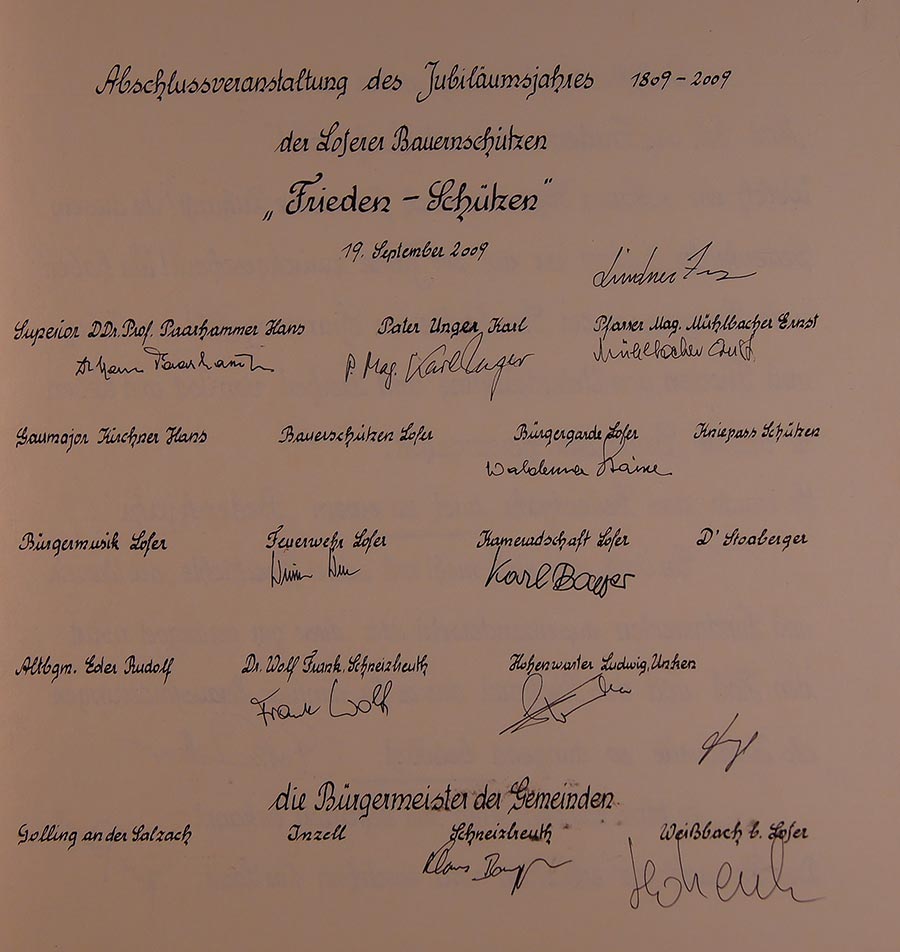 Abschlussveranstaltung des Jubiläumsjahres 1809 – 2009
der Loferer Bauernschützen
„Frieden – Schützen"
19. September 2009
Lindner
Superior DDr. Prof. Paarhammer Hans Pater Unger, Karl Pfarrer Mag. Mühlbacher Ernst
Dr Hans Paarhammer P. Mag. Karl Unger Mühlbacher Ernst
Gaumajor Kirchner Hans Bauerschützen Lofer Bürgergarde Lofer Kniepass Schützen
Waldemar
Bürgermusik Lofer Feuerwehr Lofer Kameradschaft Lofer D' Stoaberger
Karl
Altbgm. Eder Rudolf Dr. Wolf Frank, Schneizlreuth Hohenwarter Ludwig, Unken
Frank Wolf
die Bürgermeister der Gemeinden
Golling an der Salzach Inzell Schneizlreuth Weißbach b. Lofer
Klaus